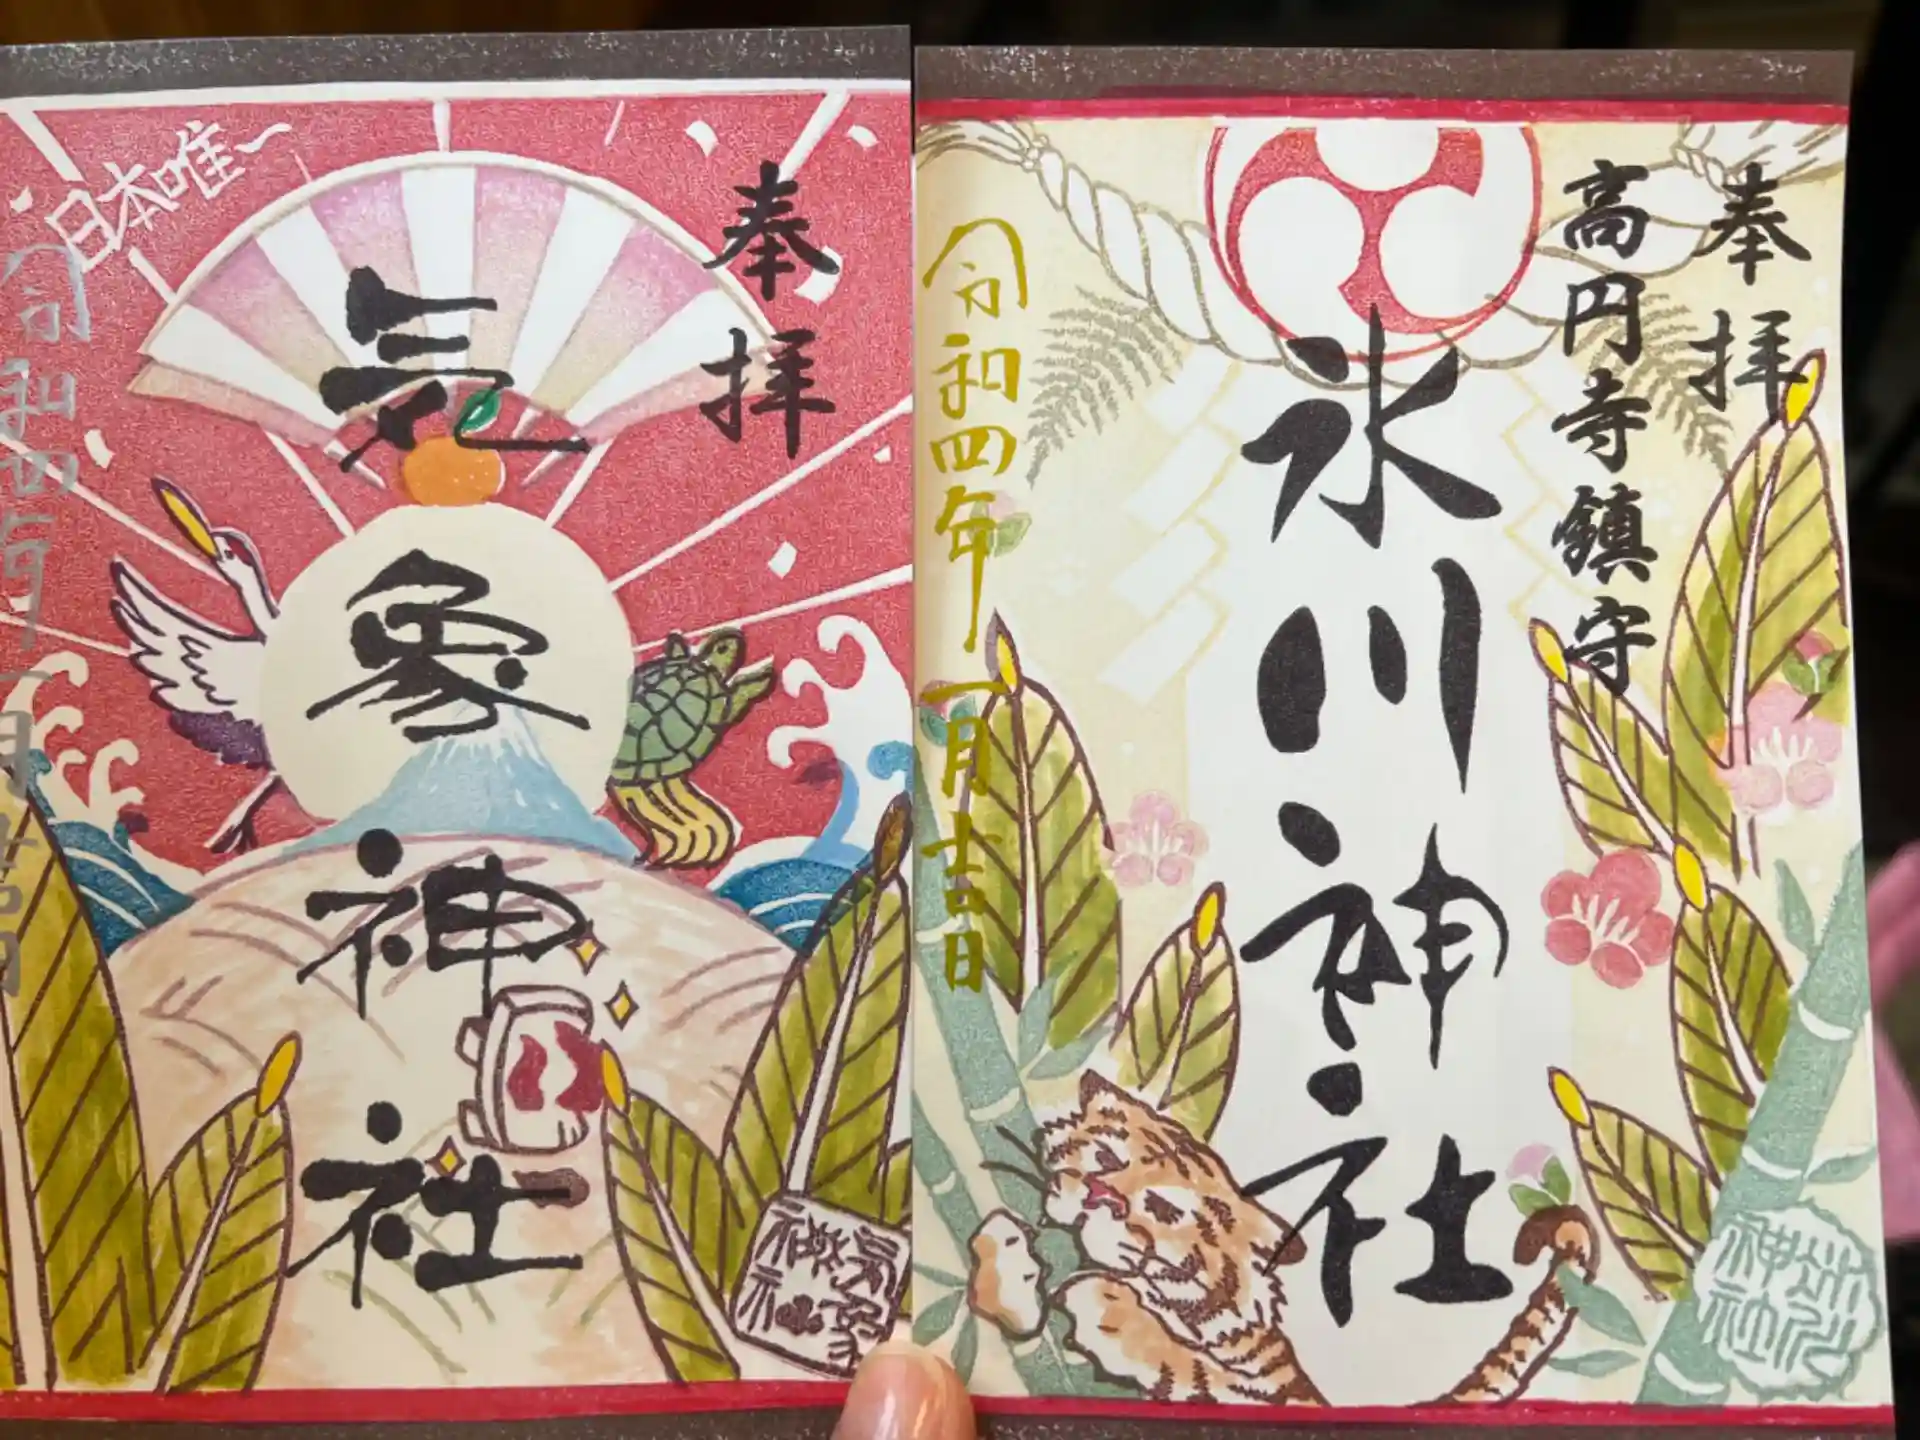 奉拝
高円寺鎮守
氷川神社
令和四年一月吉日
氷川神社
奉拝
気象神社
日本唯一
令和四年一月吉日
気象神社